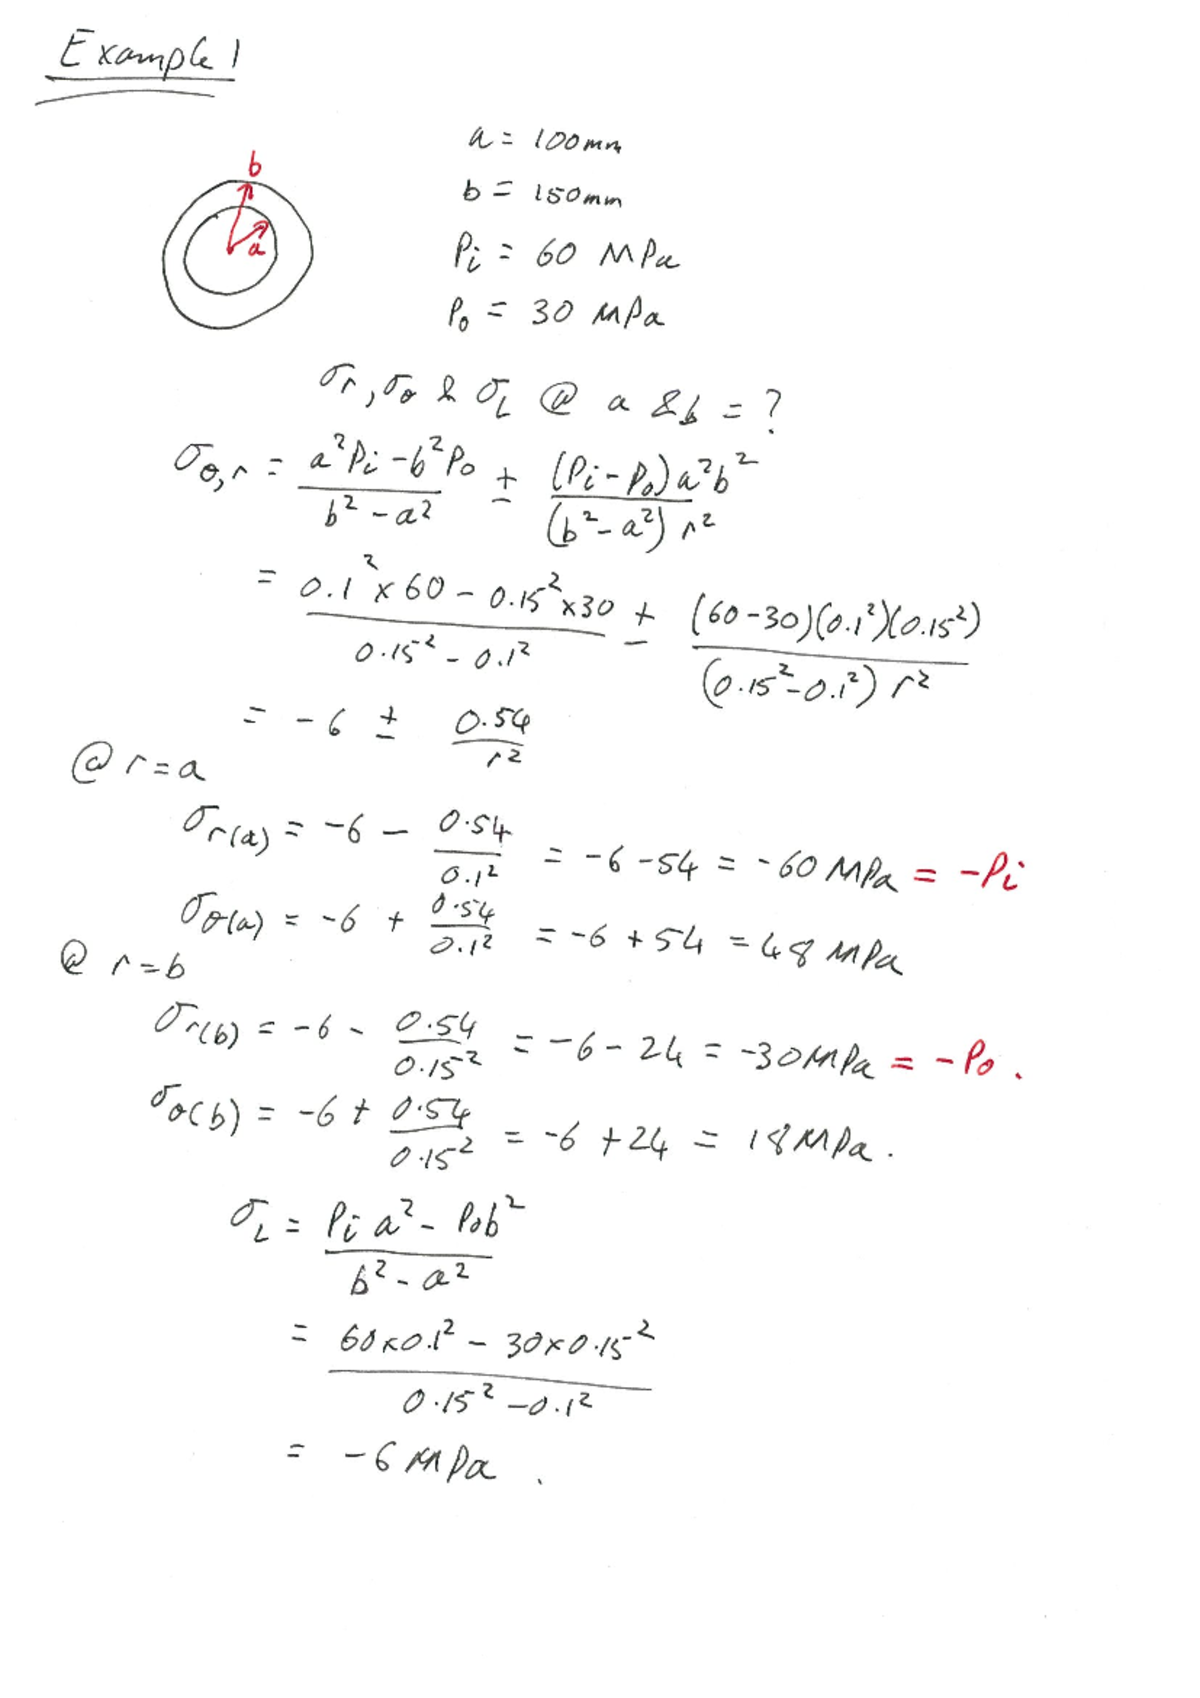 Example 1
b
a
a = 100mm
b = 150mm
Pi = 60 MPa
Po = 30 MPa
σr, σθ & σL @ a & b = ?
σθ,r = (a²Pi - b²Po)/(b² - a²) ± ((Pi - Po)a²b²)/((b² - a²) r²)
= (0.1² × 60 - 0.15² × 30)/(0.15² - 0.1²) ± ((60-30)(0.1²)(0.15²))/((0.15² - 0.1²) r²)
= -6 ± 0.54/r²
@ r = a
σr(a) = -6 - 0.54/0.1² = -6 - 54 = -60 MPa = -Pi
σθ(a) = -6 + 0.54/0.1² = -6 + 54 = 48 MPa
@ r = b
σr(b) = -6 - 0.54/0.15² = -6 - 24 = -30 MPa = -Po.
σθ(b) = -6 + 0.54/0.15² = -6 + 24 = 18 MPa.
σL = (Pi a² - Po b²)/(b² - a²)
= (60×0.1² - 30×0.15²)/(0.15² - 0.1²)
= -6 MPa.